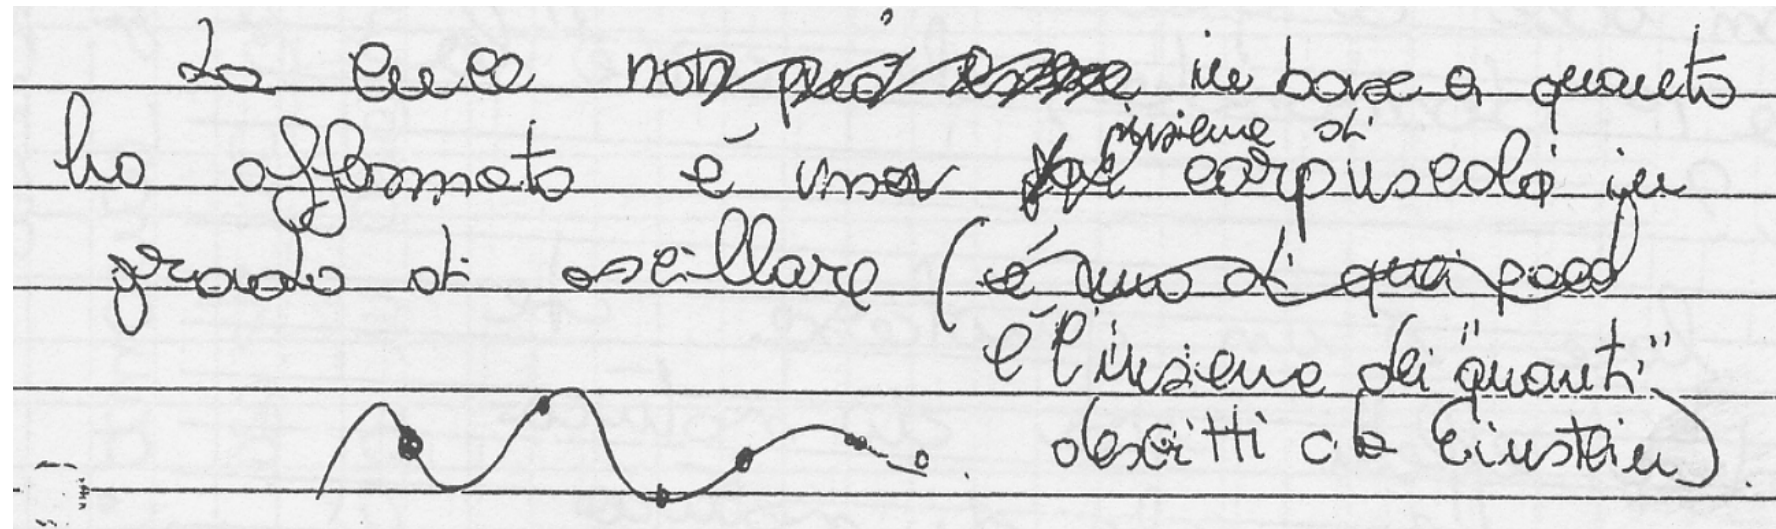 La luce non può essere in base a quanto
ho affermato è una insieme di corpuscoli in
grado di oscillare (è uno di quei
è l'insieme dei "quanti"
descritti da Einstein).